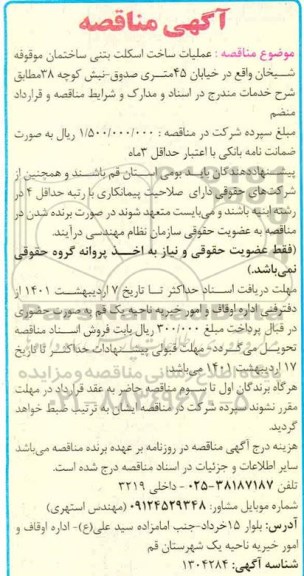 آگهی مناقصه
موضوع مناقصه : عملیات ساخت اسکلت بتنی ساختمان موقوفه
شیخان واقع در خیابان ۴۵متـری صدوق-نبش کوچه ۳۸مطابق
شرح خدمات مندرج در اسناد و مدارک و شرایط مناقصه و قرارداد
منضم
مبلغ سپرده شرکت در مناقصه : ۱/۵۰۰/۰۰۰/۰۰۰ ریال به صورت
ضمانت نامه بانکی با اعتبار حداقل ۳ماه
پیشـنهاددهندگان بایـد بومی استان قم باشـند و همچنین از
شرکت‌های حقوقی دارای صلاحیت پیمانکاری با رتبه حداقل ۴ در
رشته ابنیه باشند و می‌بایست متعهد شوند در صورت برنده شدن در
مناقصه به عضویت حقوقی سازمان نظام مهندسی درآیند.
(فقط عضویت حقوقی و نیاز به اخـذ پروانه گروه حقوقی
نمی‌باشد.)
مهلت دریافت اسـناد حداکثر تـا تاریخ ۷ اردیبهشـت ۱۴۰۱ از
دفترفنی اداره اوقاف و امور خیریه ناحیه یک قم به صورت حضوری
در قبال پرداخت مبلغ ۳۰۰/۰۰۰ ریال بابت فروش اسـناد مناقصه
تحویـل می‌گـردد- مهلت قبولی پیشـنهادات حداکثـر تا تاریخ
۱۷ اردیبهشت ۱۴۰۱ می‌باشد.
هرگاه برندگان اول تا سـوم مناقصه حاضر به عقد قرارداد در مهلت
مقرر نشوند سپرده شرکت در مناقصه ایشان به ترتیب ضبط خواهد
گردید.
هزینه درج آگهی مناقصه در روزنامه بر عهده برنده مناقصه می‌باشد
سایر اطلاعات و جزئیات در اسناد مناقصه درج شده است.
تلفن ۳۸۱۸۷۱۸۷-۰۲۵ - داخلی ۳۲۱۹
شماره موبایل مشاور: ۰۹۱۲۴۵۲۹۳۴۸ (مهندس استهری)
آدرس: بلوار ۱۵خرداد-جنب امامزاده سید علی(ع)- اداره اوقاف و
امور خیریه ناحیه یک شهرستان قم
شناسه آگهی: ۱۳۰۴۲۸۴